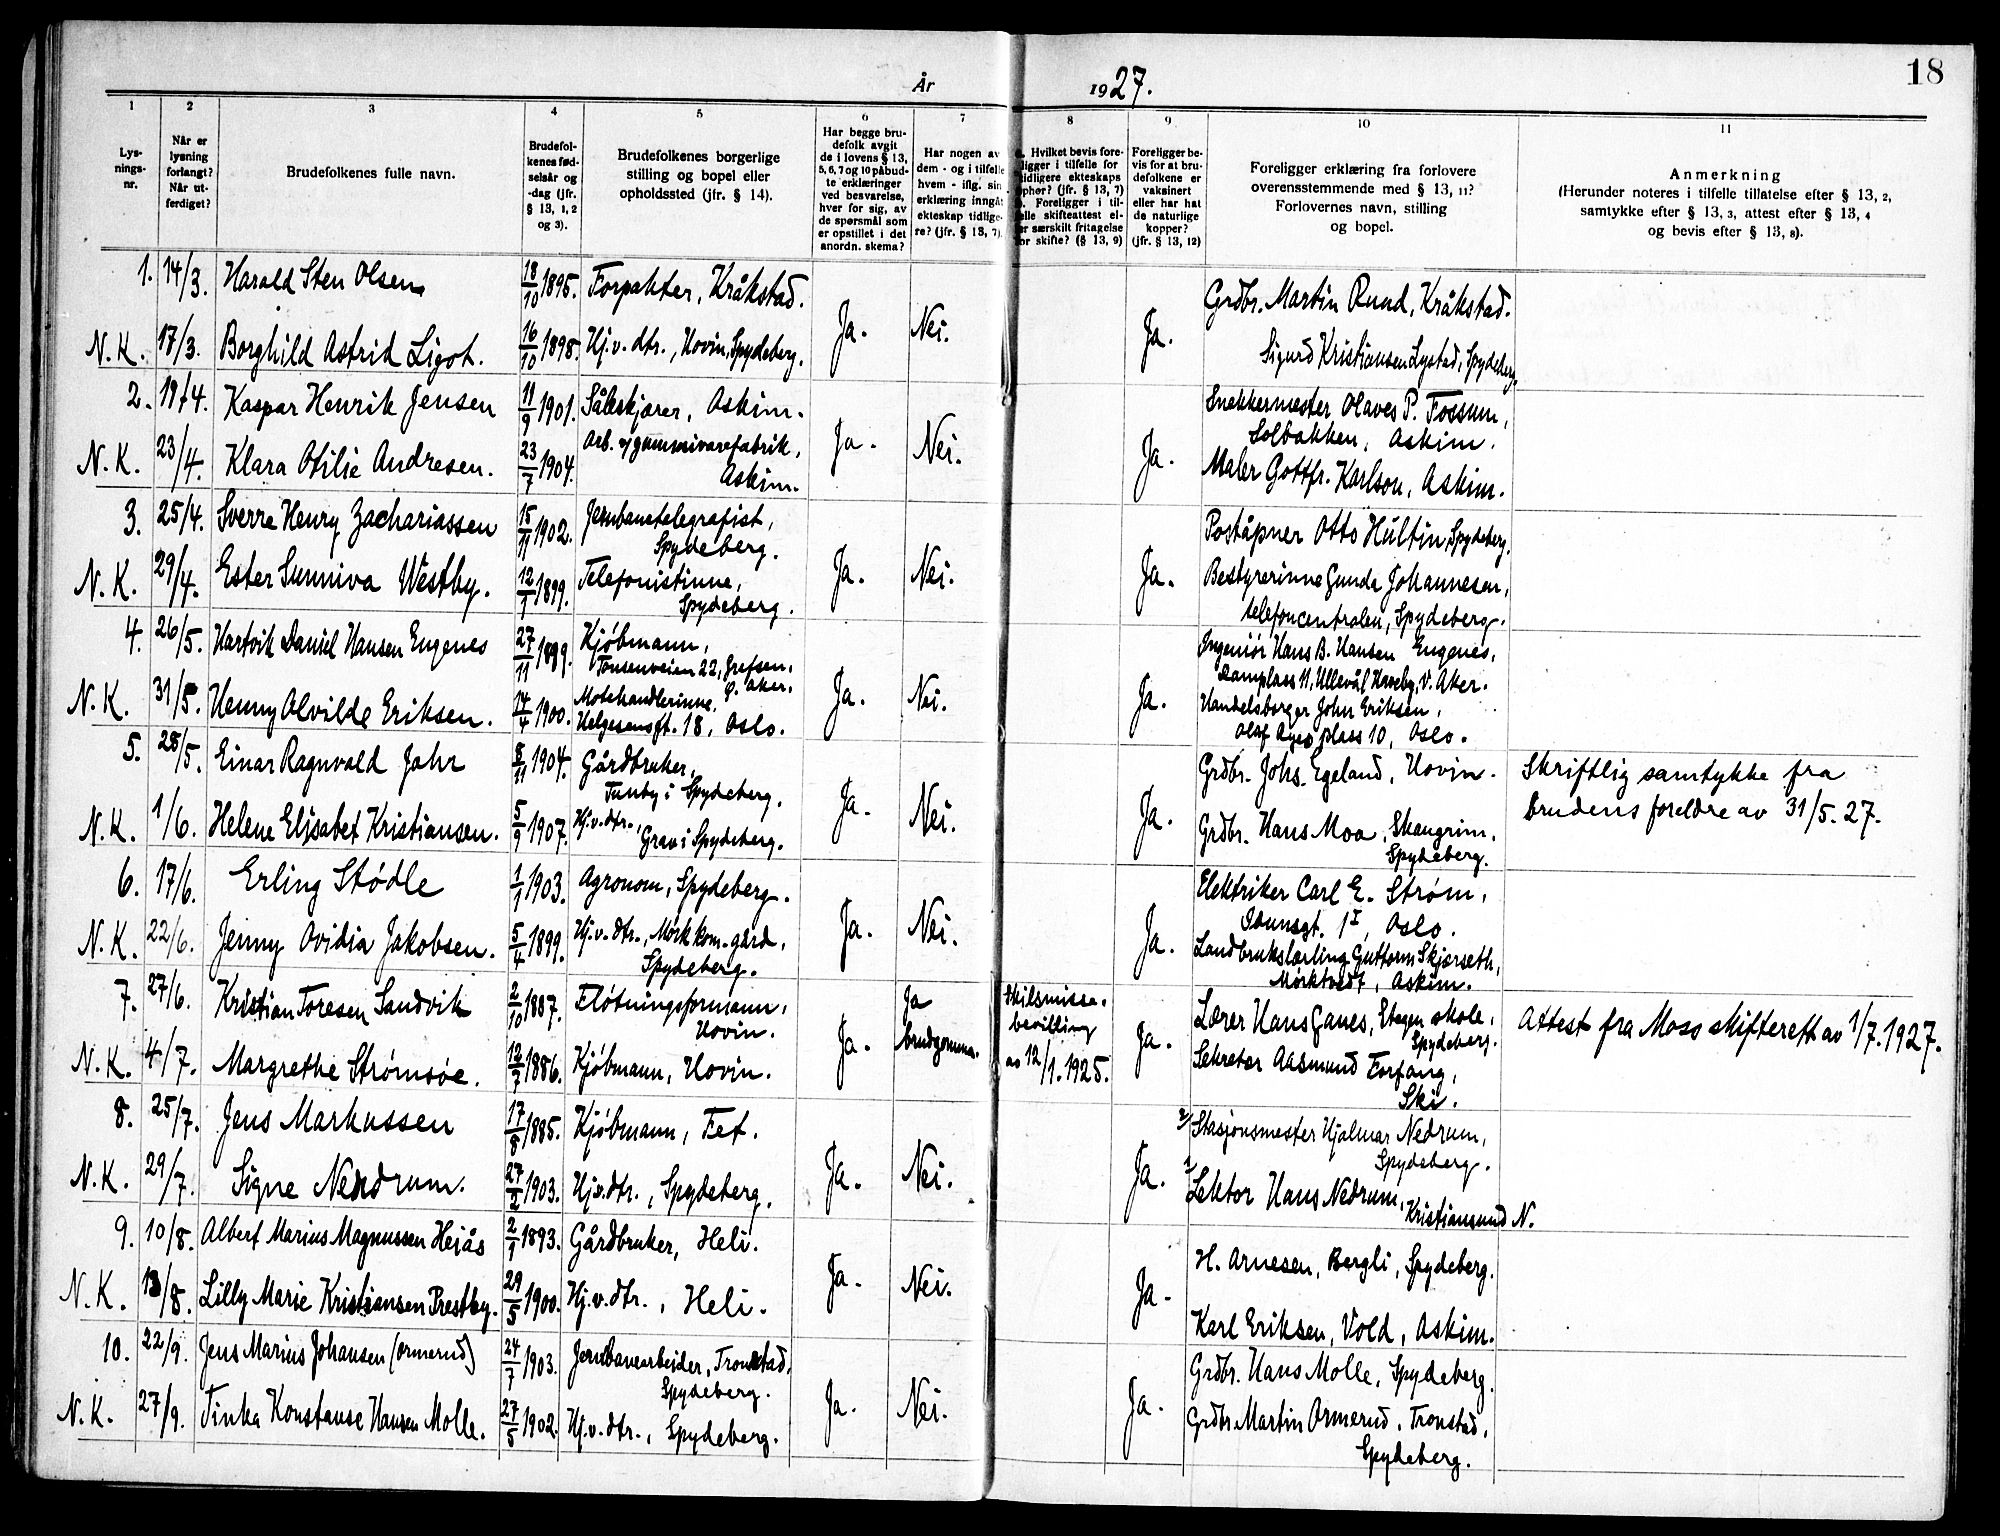 18
År 1927.
1 2 3 4 5 6 7 8 9 10 11
Lysningsnr.
Når er lysning forlangt? Når utferdiget?
Brudefolkenes fulle navn.
Brudefolkenes fødselsår og -dag (jfr. § 13, 1, 2 og 3).
Brudefolkenes borgerlige stilling og bopel eller opholdssted (jfr. § 14).
Har begge brudefolk avgit de i lovens § 13, 5, 6, 7 og 10 påbudte erklæringer ved besvarelse, hver for sig, av de spørsmål som er opstillet i det anordn. skema?
Har nogen av dem - og i tilfelle hvem - iflg. sin erklæring inngåt ekteskap tidligere? (jfr. § 13, 7).
Hvilket bevis foreligger i tilfelle for tidligere ekteskaps ophør? (jfr. § 13, 7) Foreligger i tilfelle skifteattest eller særskilt fritagelse for skifte? (§ 13, 9)
Foreligger bevis for at brudefolkene er vaksinert eller har hat de naturlige kopper? (jfr. § 13, 12)
Foreligger erklæring fra forlovere overensstemmende med § 13, 11? Forlovernes navn, stilling og bopel.
Anmerkning (Herunder noteres i tilfelle tillatelse efter § 13, 2, samtykke efter § 13, 3, attest efter § 13, 4 og bevis efter § 13, 8).
1. 14/3. Harald Sten Olsen 18/10 1895. Forpakter, Kråkstad. Ja. Nei. Ja. Grdbr. Martin Ruud, Kråkstad.
N.K. 17/3. Borghild Astrid Ligot. 16/10 1898. Hj.v.dtr., Hovin, Spydeberg. Sigurd Kristiansen Lystad, Spydeberg.
2. 19/4. Kaspar Henrik Jensen 11/9 1901. Såleskjærer, Askim. Ja. Nei. Ja. Snekkermester Olaves P. Fossum, Solbakken, Askim.
N.K. 23/4. Klara Otilie Andresen. 23/7 1904. Arb. v/gummivarefabrik, Askim. Maler Gottfr. Karlson, Askim.
3. 25/4. Sverre Henry Zachariassen 15/11 1902. Jernbanetelegrafist, Spydeberg. Ja. Nei. Ja. Poståpner Otto Hultin, Spydeberg.
N.K. 29/4. Ester Sunniva Westby. 12/1 1899. Telefonistinne, Spydeberg. Bestyrerinne Gunda Johannesen, telefoncentralen, Spydeberg.
4. 26/5. Hartvik Daniel Hansen Engenes 27/11 1899. Kjøbmann, Tonsenveien 22, Grefsen, Ø. Aker. Ja. Nei. Ja. Ingeniør Hans B. Hansen Engenes, Damplass 11, Ullevål Haveby, V. Aker.
N.K. 31/5. Henny Alvilde Eriksen. 14/4 1900. Motehandlerinne, Helgesensgt. 18, Oslo. Handelsborger John Eriksen, Olaf Ryes plass 10, Oslo.
5. 28/5. Einar Ragnvald Jahr 8/11 1904. Gårdbruker, Tunby i Spydeberg. Ja. Nei. Ja. Grdbr. Johs. Egeland, Hovin. Skriftlig samtykke fra
N.K. 1/6. Helene Elisabet Kristiansen. 5/9 1907. Hj.v.dtr., Grav i Spydeberg. Grdbr. Hans Moa, Skaugrim. Spydeberg. brudens foreldre av 31/5.27.
6. 17/6. Erling Stødle 1/1 1903. Agronom, Spydeberg. Ja. Nei. Ja. Elektriker Carl E. Strøm, Idunsgt. 1 I, Oslo.
N.K. 22/6. Jenny Ovidia Jakobsen. 5/4 1899. Hj.v.dtr., Mørk kom. gård, Spydeberg. Landbrukslærling Guttorm Skjørseth, Mørktvedt, Askim.
7. 27/6. Kristian Toresen Sandvik 2/10 1887. Fløtningsformann, Hovin. Ja. Ja brudgomma. Skilsmissebevilling av 12/1.1925. Ja. Lærer Hans Ganes, Stegen skole, Spydeberg. Attest fra Moss skifterett av 1/7.1927.
N.K. 4/7. Margrethe Strømsøe. 12/7 1886. Kjøbmann, Hovin. Sekretær Aasmund Forfang, Ski.
8. 25/7. Jens Markussen 17/8 1885. Kjøbmann, Fet. Ja. Nei. Ja. 2/ Stasjonsmester Hjalmar Nedrum, Spydeberg.
N.K. 29/7. Signe Nedrum. 27/2 1903. Hj.v.dtr., Spydeberg. 1/ Lektor Hans Nedrum, Kristiansund N.
9. 10/8. Albert Marius Magnussen Heiås 2/1 1893. Gårdbruker, Heli. Ja. Nei. Ja. H. Arnesen, Bergli, Spydeberg.
N.K. 13/8. Lilly Marie Kristiansen Prestby. 29/5 1900. Hj.v.dtr., Heli. Karl Eriksen, Vold, Askim.
10. 22/9. Jens Marius Johansen (Ormerud) 24/7 1903. Jernbanearbeider, Tronstad, Spydeberg. Ja. Nei. Ja. Grdbr. Hans Molle, Spydeberg.
N.K. 27/9. Tinka Konstanse Hansen Molle. 27/5 1902. Hj.v.dtr., Spydeberg. Grdbr. Martin Ormerud, Tronstad, Spydeberg.